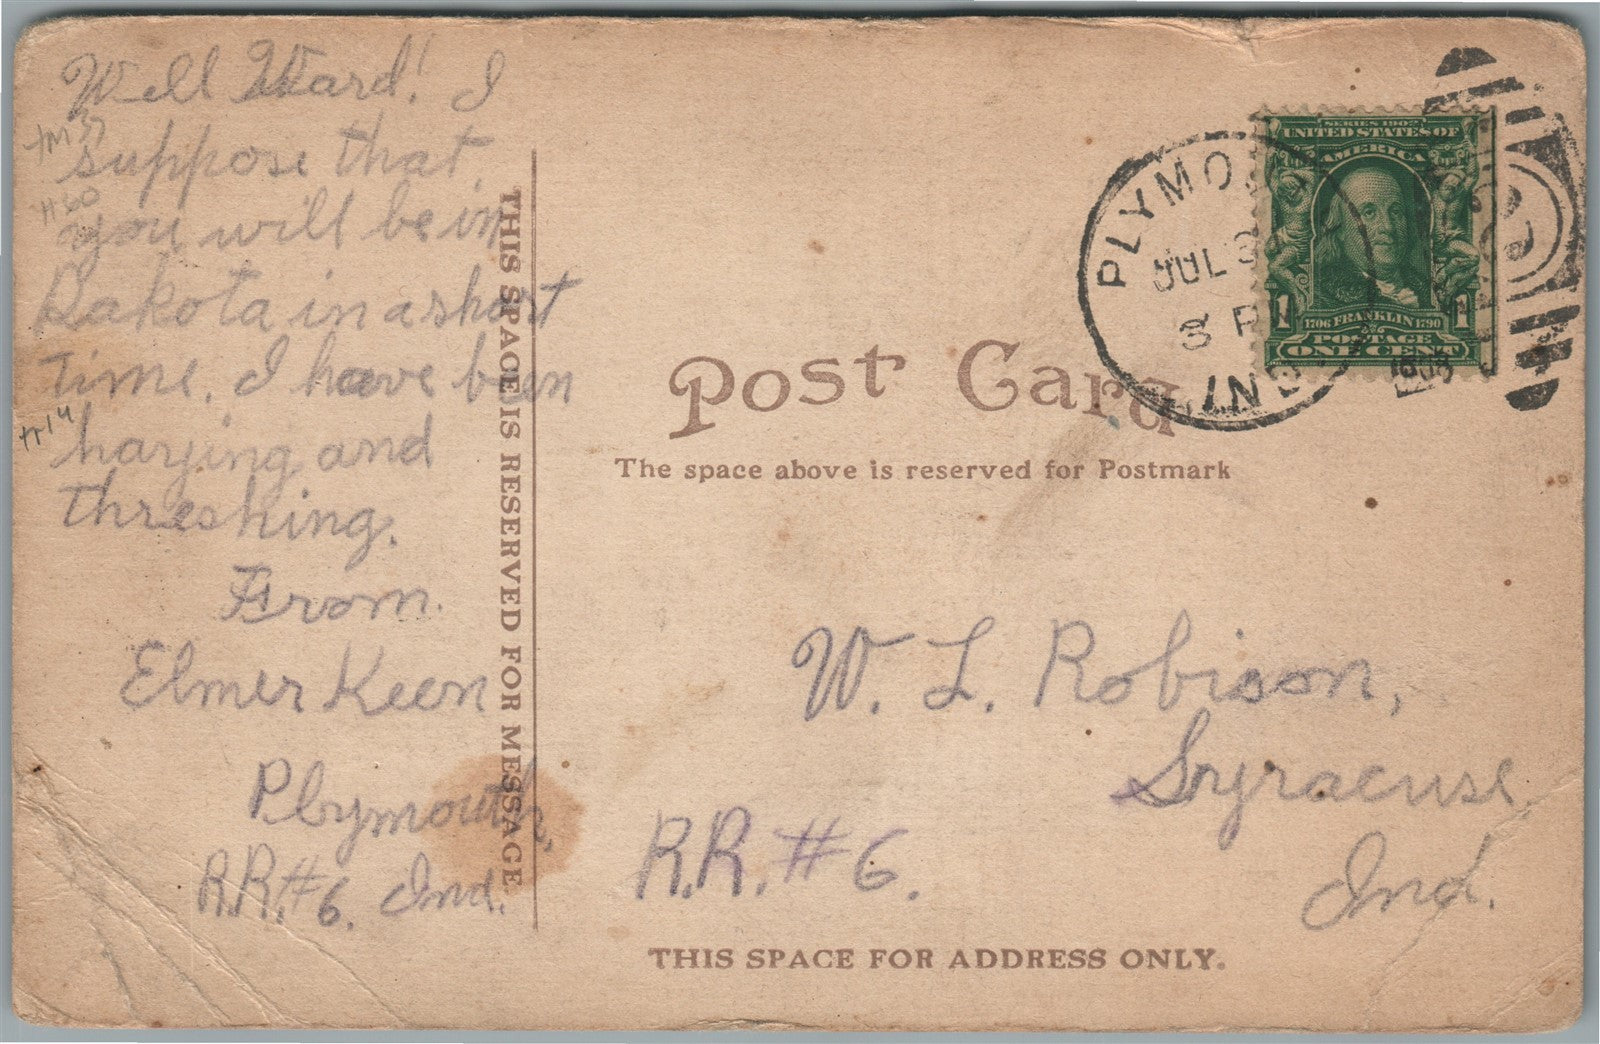 Well Ward! I
suppose that
you will be in
Dakota in a short
time. I have been
haying and
threshing.
From.
Elmer Keen
Plymouth,
R.R.#6. Ind.
THIS SPACE IS RESERVED FOR MESSAGE.
Post Card
The space above is reserved for Postmark
PLYMOUTH
JUL 3
3 PM
IND
SERIES 1902
UNITED STATES OF
AMERICA
1 1
1706 FRANKLIN 1790
POSTAGE
ONE CENT
W. L. Robison,
Syracuse
R.R.#6.
Ind.
THIS SPACE FOR ADDRESS ONLY.